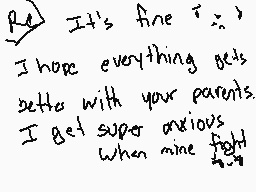 Re It's fine
I hope everything gets
better with your parents.
I get super anxious
when mine fight